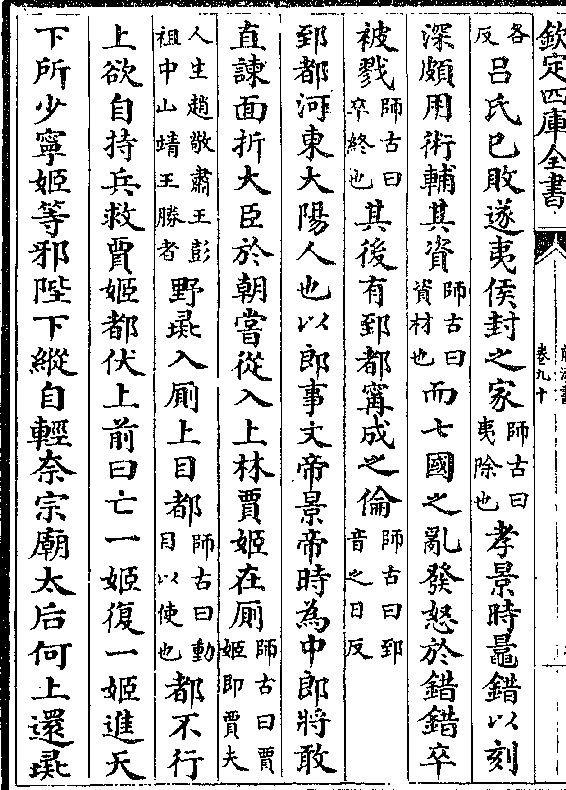 欽定四庫全書
卷九十
各反呂氏已敗遂夷侯封之家師古曰夷除也孝景時鼂錯以刻
深頗用術輔其資師古曰資材也而七國之亂發怒於錯錯卒
被戮師古曰卒終也其後有郅都寗成之倫師古曰郅音之日反
郅都河東大陽人也以郎事文帝景帝時為中郎將敢
直諫面折大臣於朝嘗從入上林賈姬在厠師古曰賈姬即賈夫
人生趙敬肅王彭祖中山靖王勝者野彘入厠上目都師古曰動目以使也都不行
上欲自持兵救賈姬都伏上前曰亡一姬復一姬進天
下所少寧姬等邪陛下縱自輕奈宗廟太后何上還彘